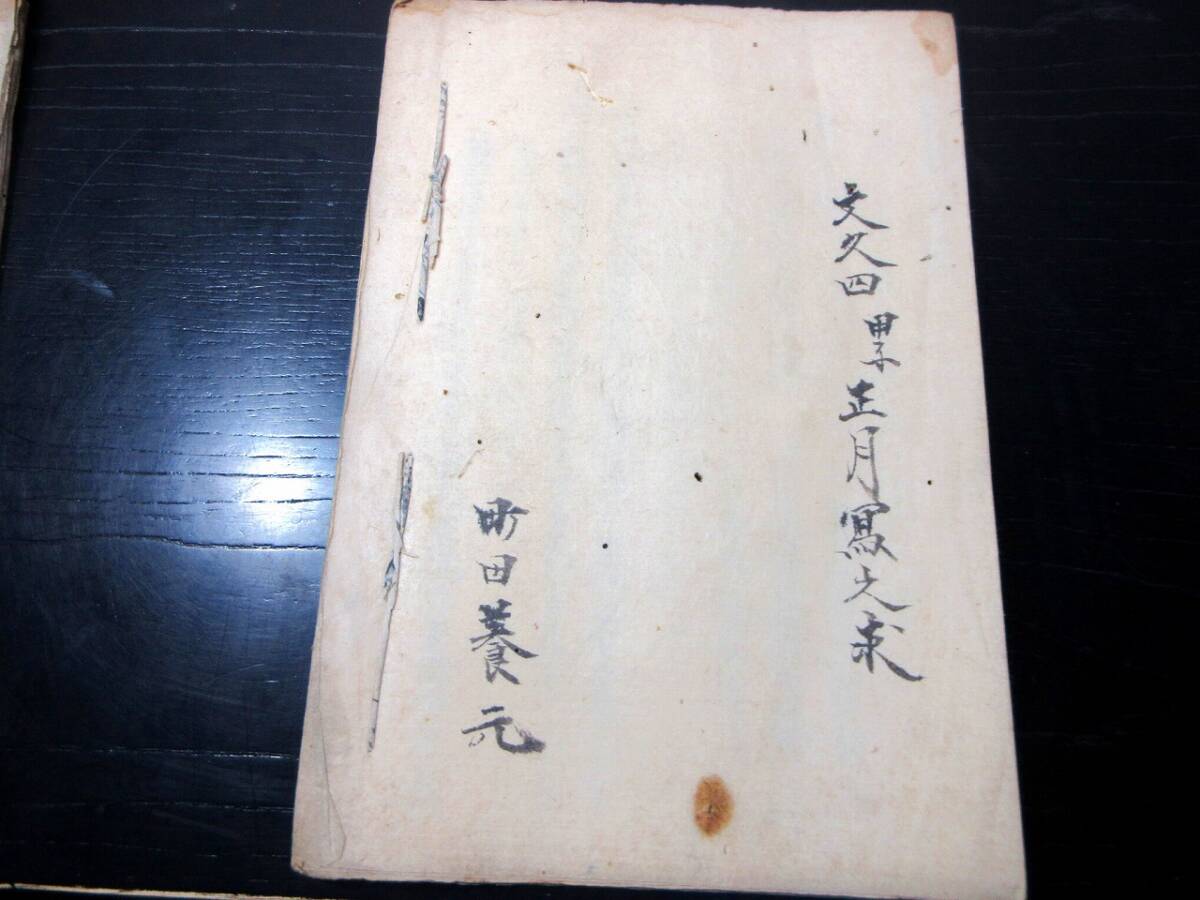 文久四甲子正月寫之求
町田養元